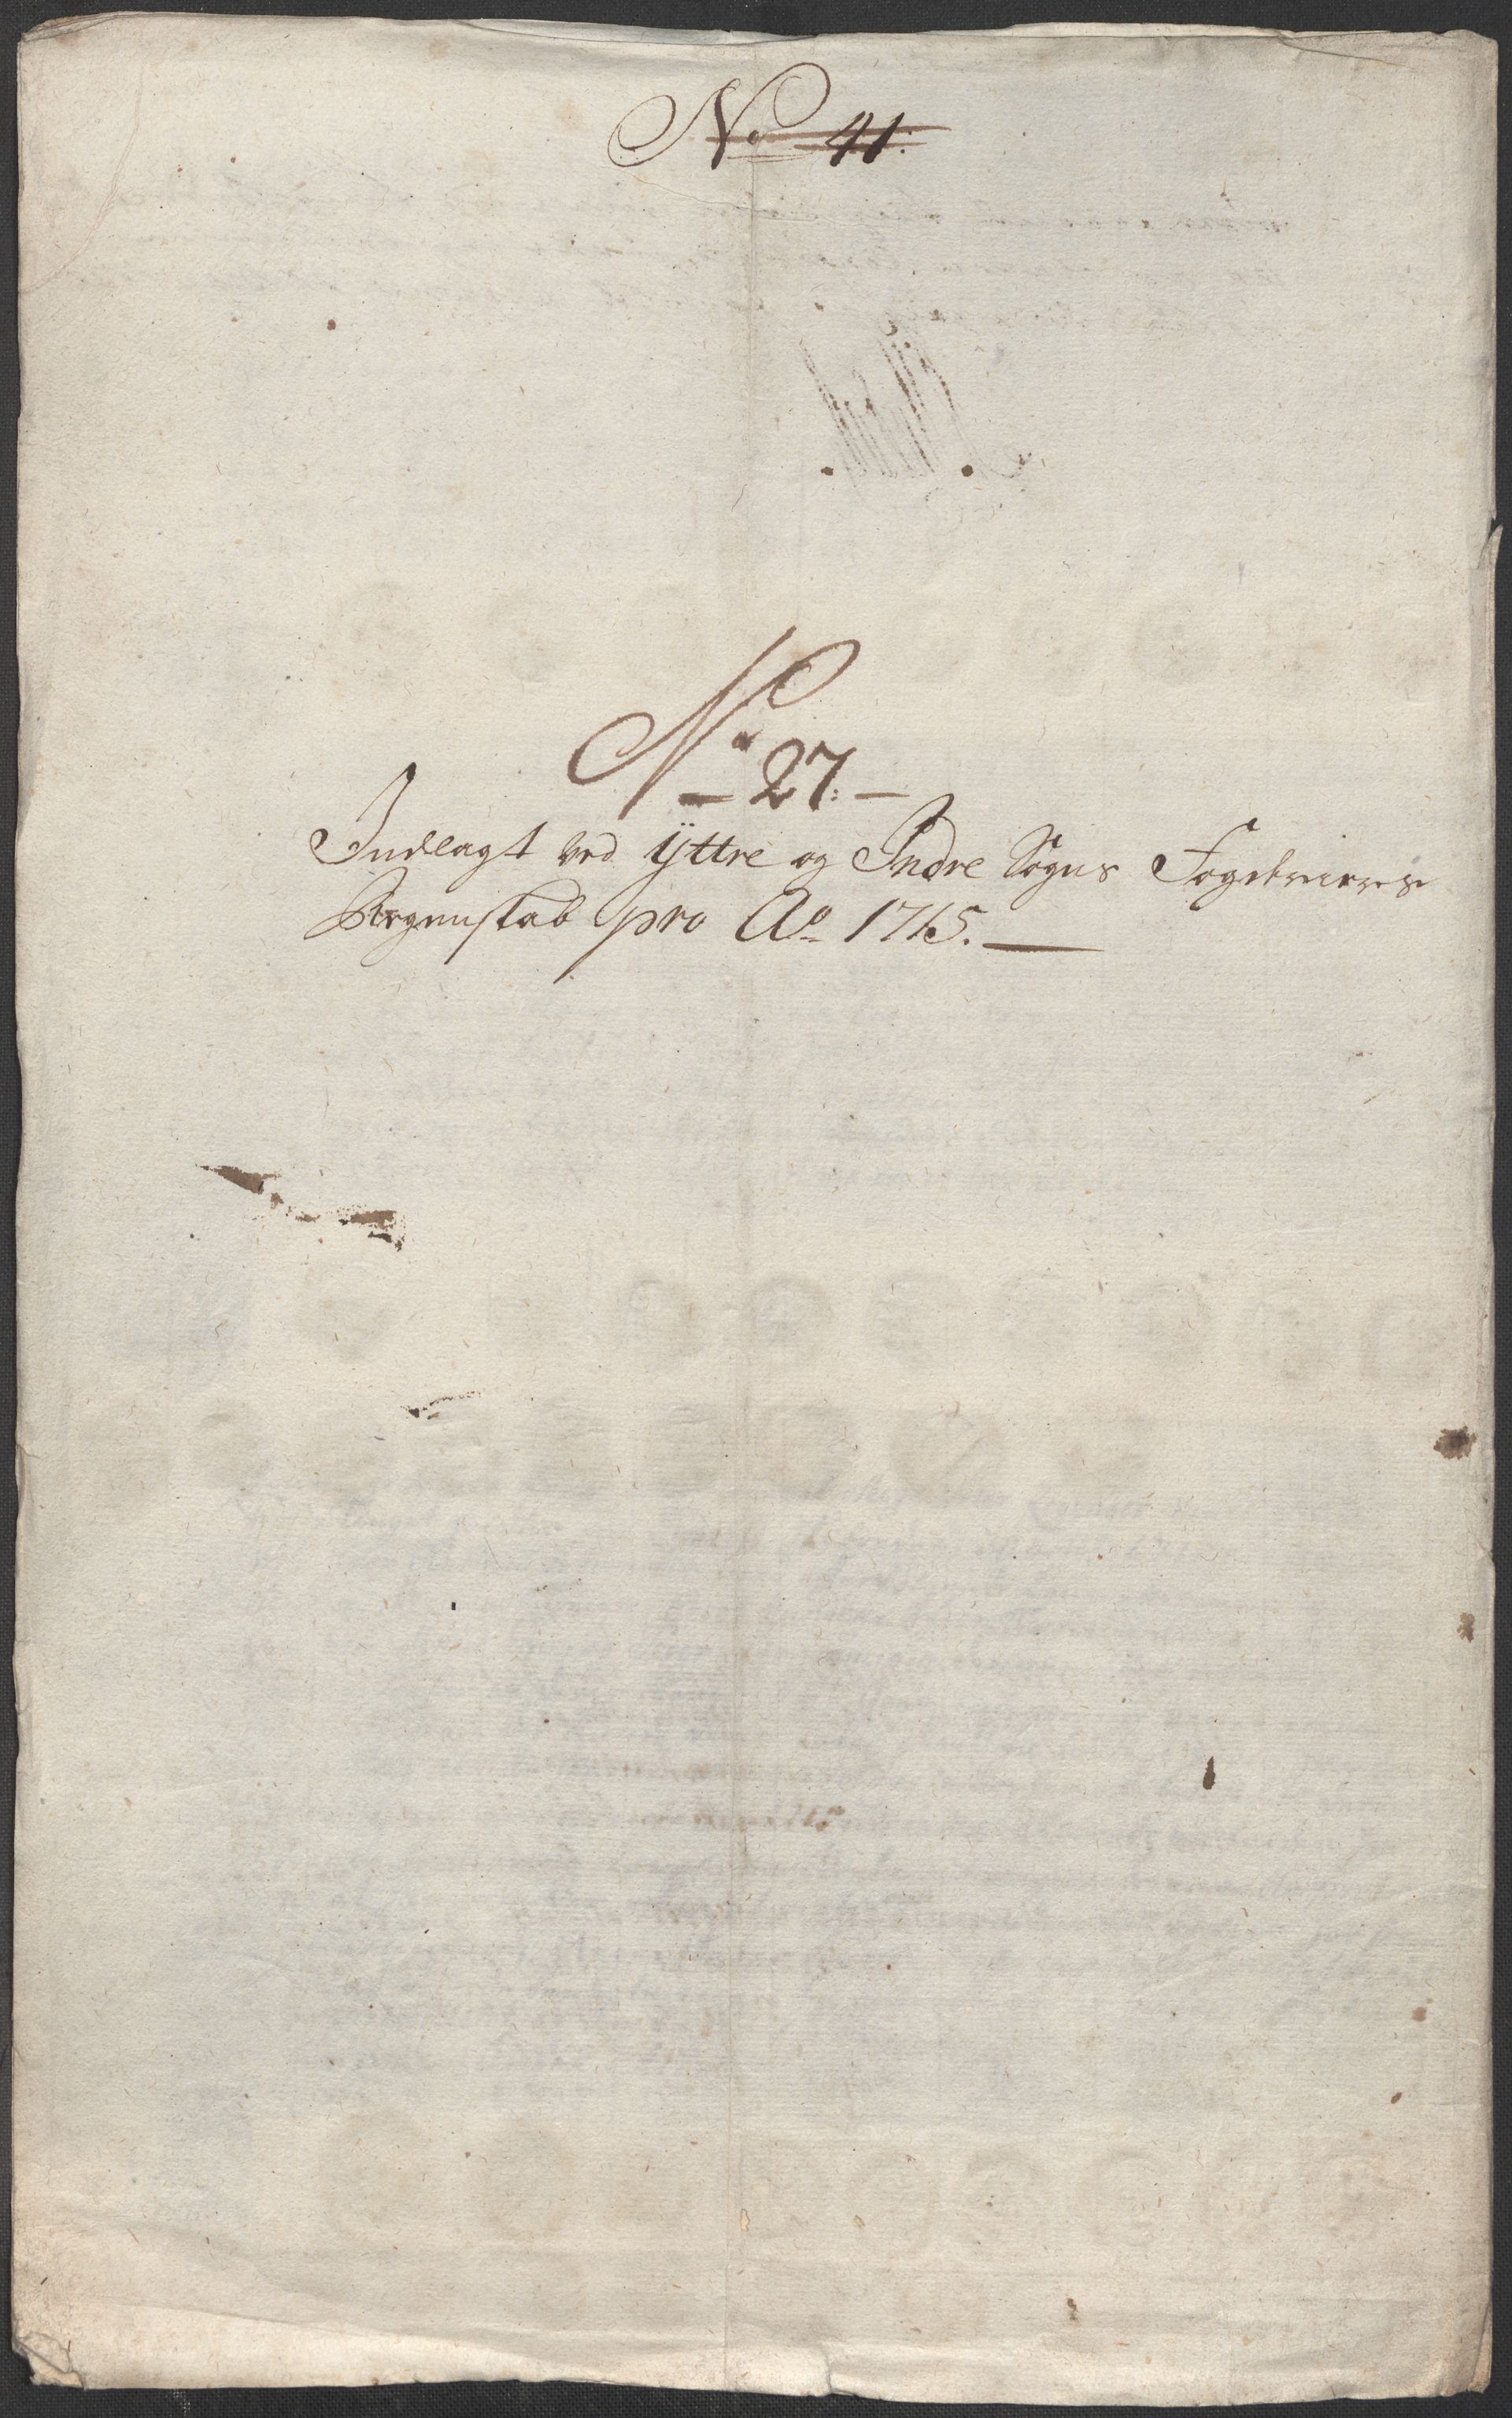 No 41:
No 27:
Indlagt ved ÿttre og Indre Sogns Fogderiers
Regenskab pro Ao 1715.